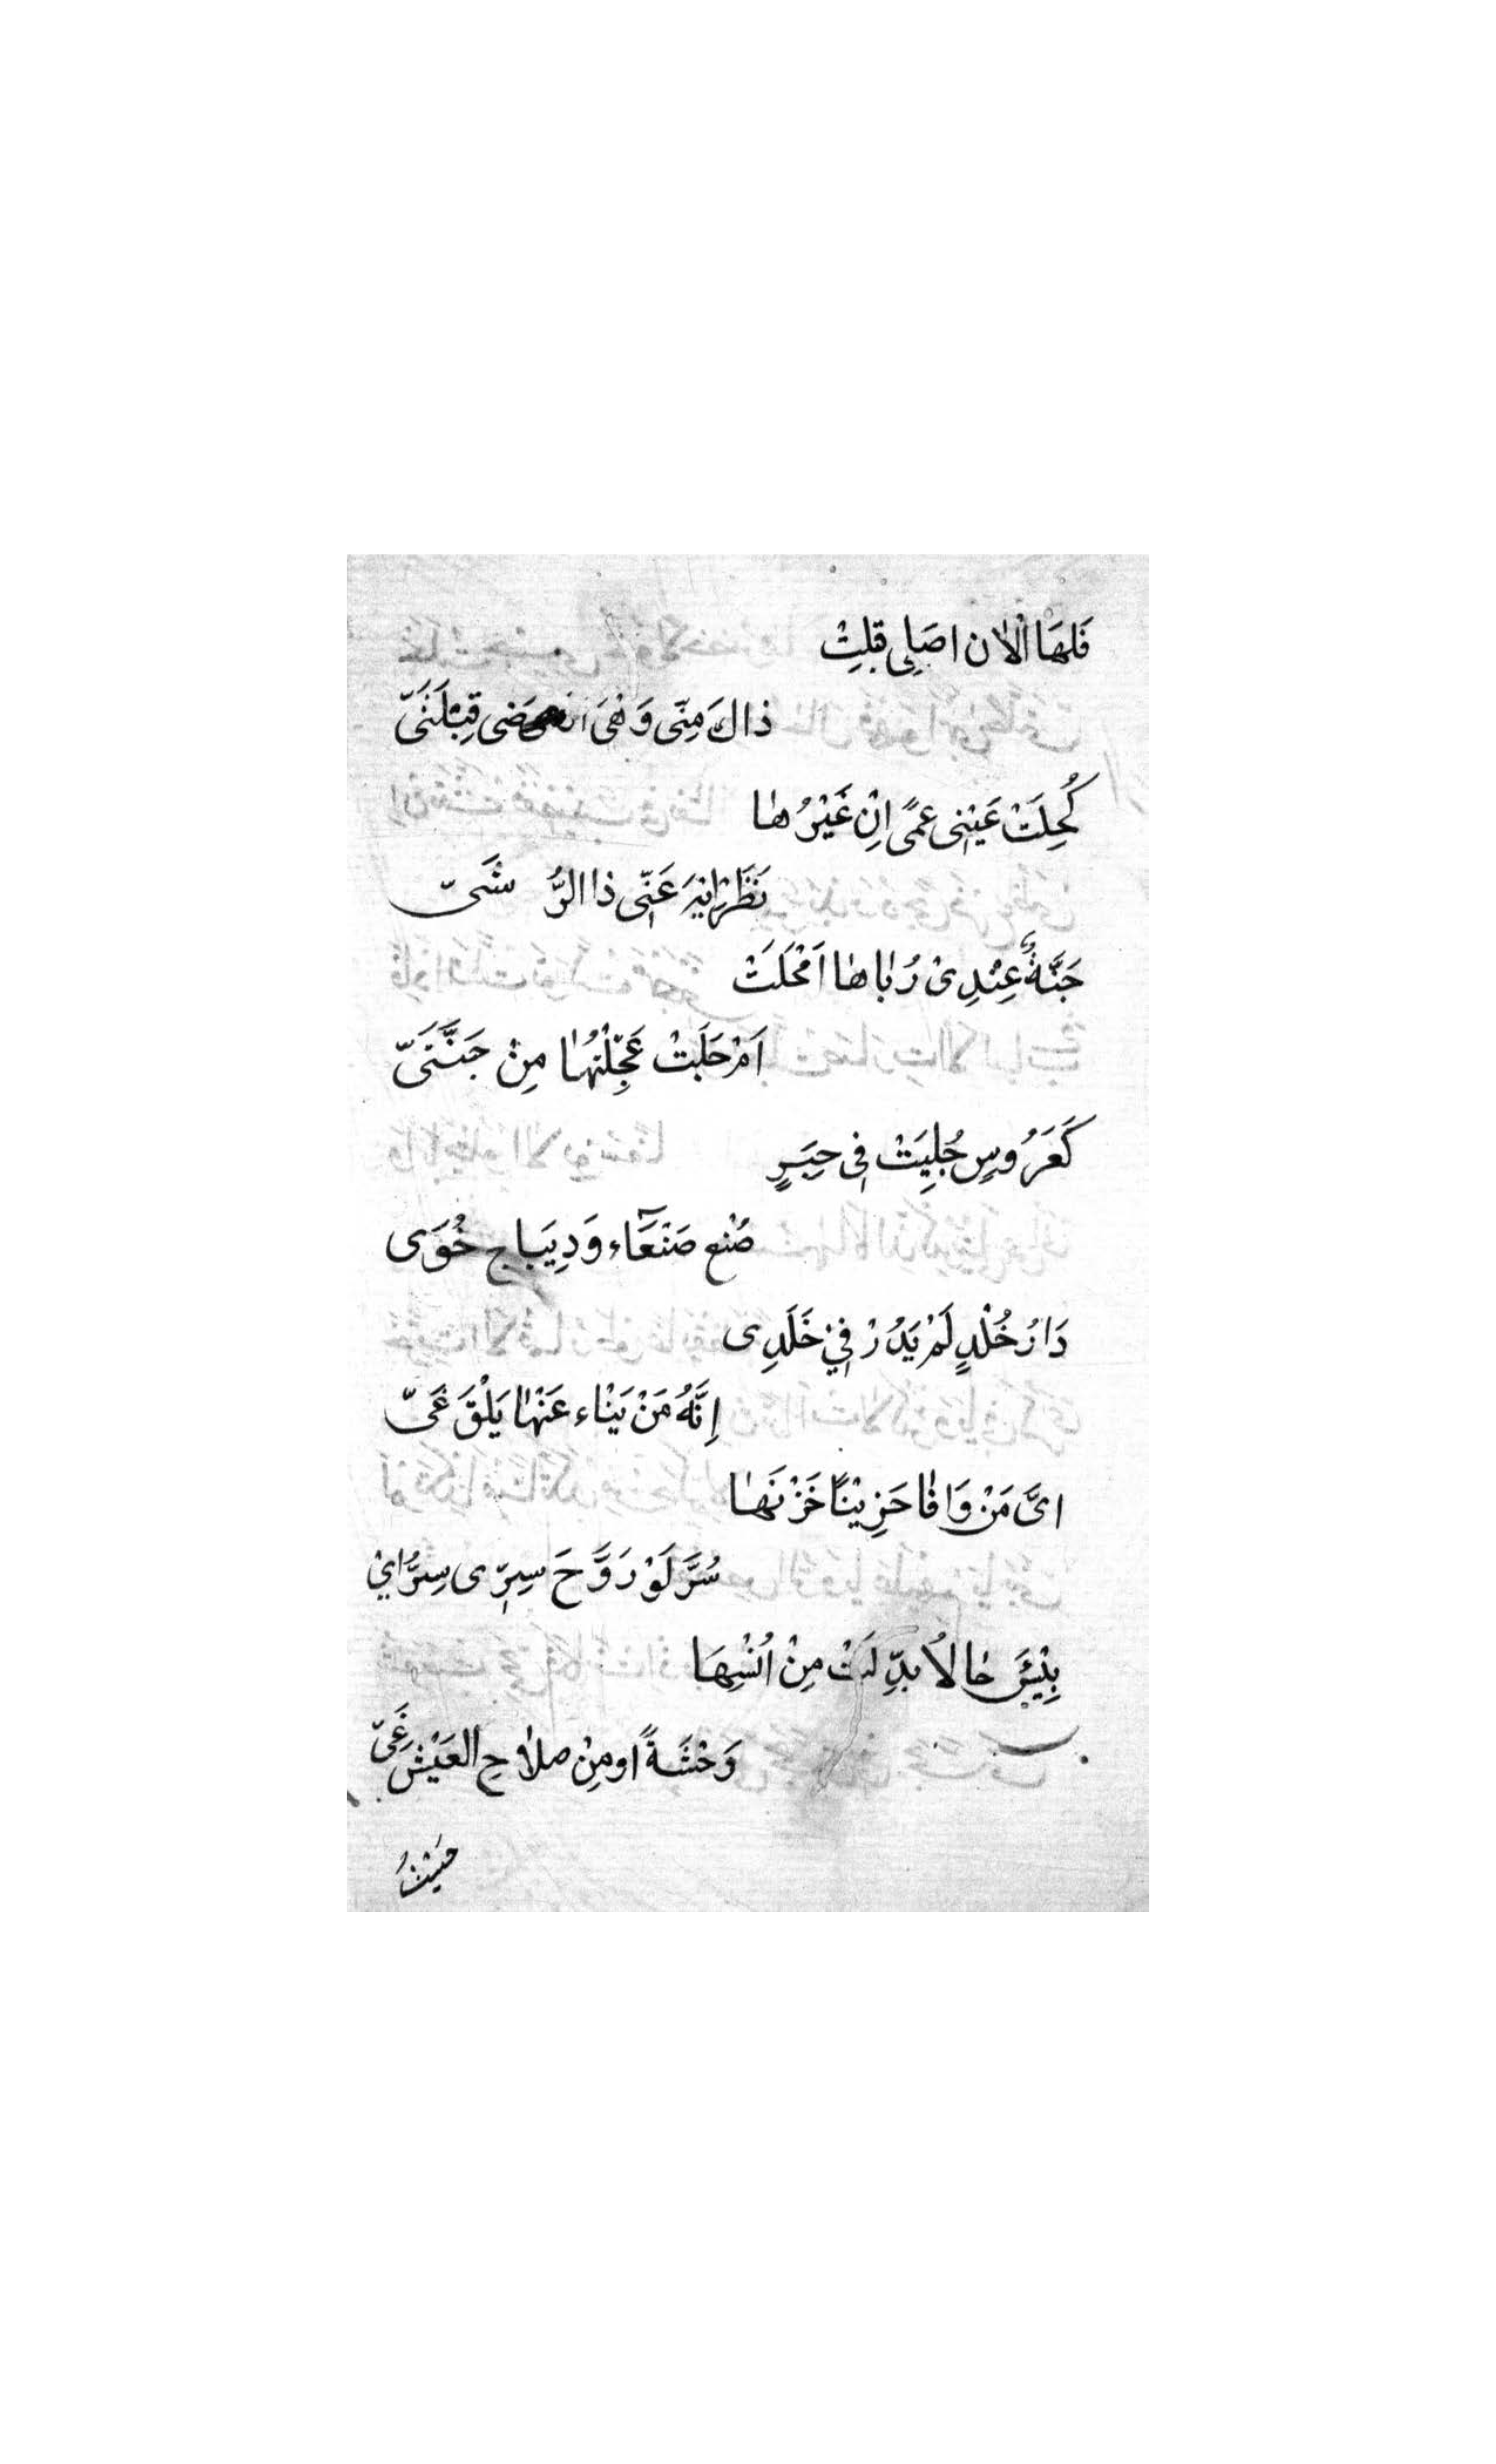 فَلَهَا الْاٰن اصَلِى قبلِتْ
ذاكَ مِنِّى وَهْىَ قِبْلَتَىّ
كُحِلَتْ عَيْنِى عَمًى اِنْ غَيْرُهٰا
نَظَرْ عَنِّى ذا الرُّشَىّ
جَنَّةٌ عِنْدِىْ رُبٰاهٰا اَمْحَلَتْ
اَمْ حَلَتْ عُجِّلْتُهٰا مِنْ جَنَّتَىّ
كَعَرُوسٍ جُلِيَتْ فِى حِبَرٍ
صُنْعِ صَنْعَآء وَدِيَبٰاجِ خُوَى
دَارُ خُلْدٍ لَمْ يَدُرْ فِىْ خَلَدِى
اِنَّهُ مَنْ يَنْاء عَنْهٰا يَلْقَ غَىّ
اىَّ مَنْ وَافٰا حَزِيْنًا حَزْنَهٰا
سُرَّ لَوْ رَوَّحَ سِرِّى سِرُّ اىْ
بِئْسَ حٰالاً بدِّلَتْ مِنْ اُنْسِهَا
وَحْشَةً او مِنْ صلاٰحِ العَيْشِ غَىّ
حَيْثُ